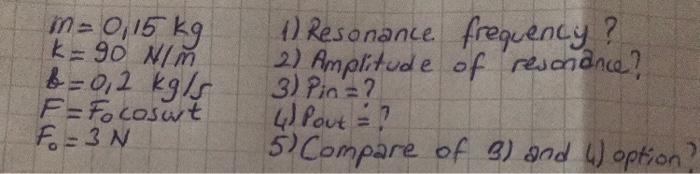 m = 0,15 kg
k = 90 N/m
b = 0,2 kg/s
F = F₀ cosωt
F₀ = 3 N
1) Resonance frequency ?
2) Amplitude of resonance?
3) Pin = ?
4) Pout = ?
5) Compare of 3) and 4) option?